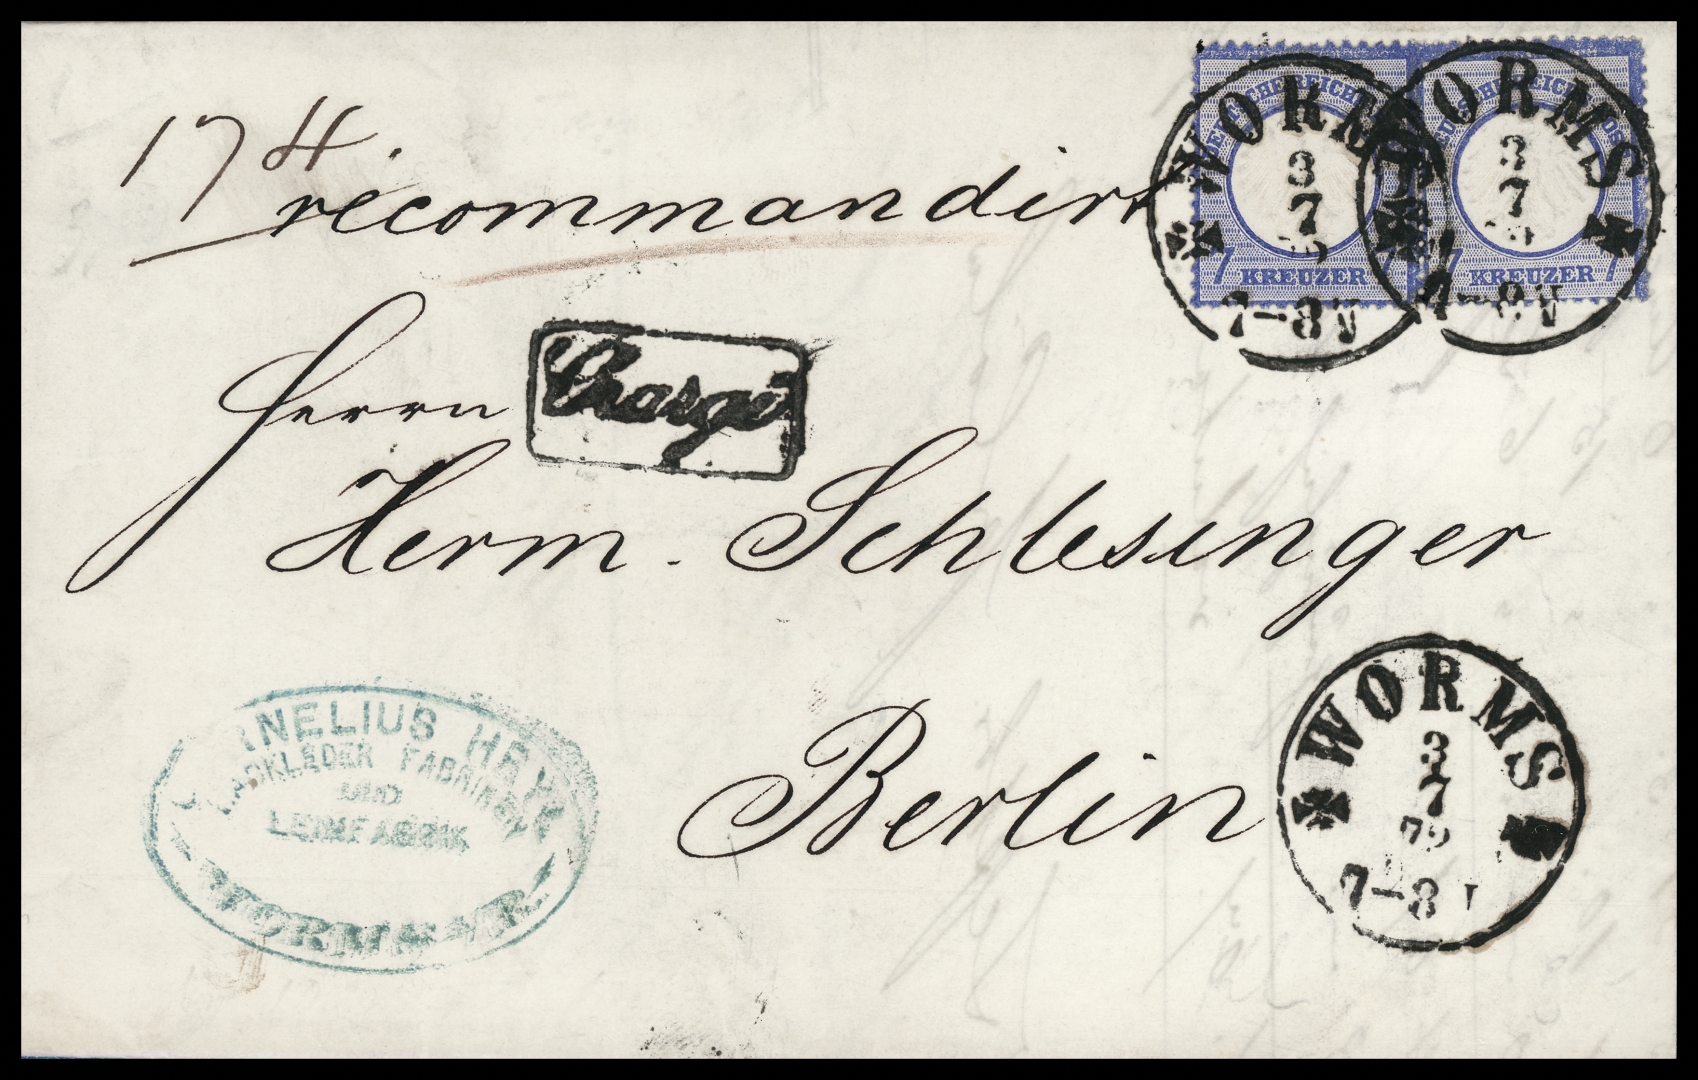 17
recommandirt
Herrn
Chargé
Herm. Schlesinger
Berlin
DEUTSCHE REICHS POST
7 KREUZER 7
DEUTSCHE REICHS POST
7 KREUZER 7
WORMS
3
7
7-8 N
WORMS
3
7
7-8 N
WORMS
3
7
72
7-8
CORNELIUS HEYL
LACKLEDER FABRIKEN
UND
LEIMFABRIK
WORMS A/R.